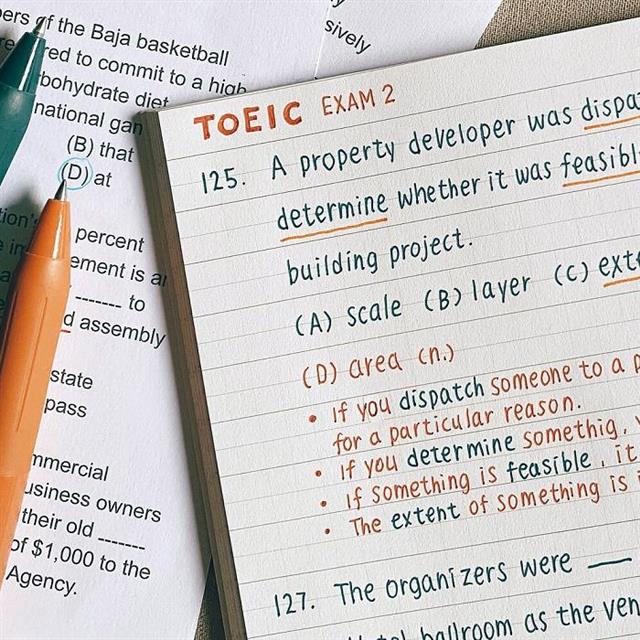 ers of the Baja basketball
red to commit to a high
bohydrate diet
national gan
(B) that
(D) at
percent
ement is an
------- to
d assembly
state
pass
mmercial
usiness owners
their old -------
of $1,000 to the
Agency.
sively
TOEIC EXAM 2
125. A property developer was dispa
determine whether it was feasibl
building project.
(A) scale (B) layer (C) exte
(D) area (n.)
• If you dispatch someone to a p
for a particular reason.
• If you determine somethig,
• If something is feasible, it
• The extent of something is i
127. The organizers were ___
Hotel ballroom as the ven